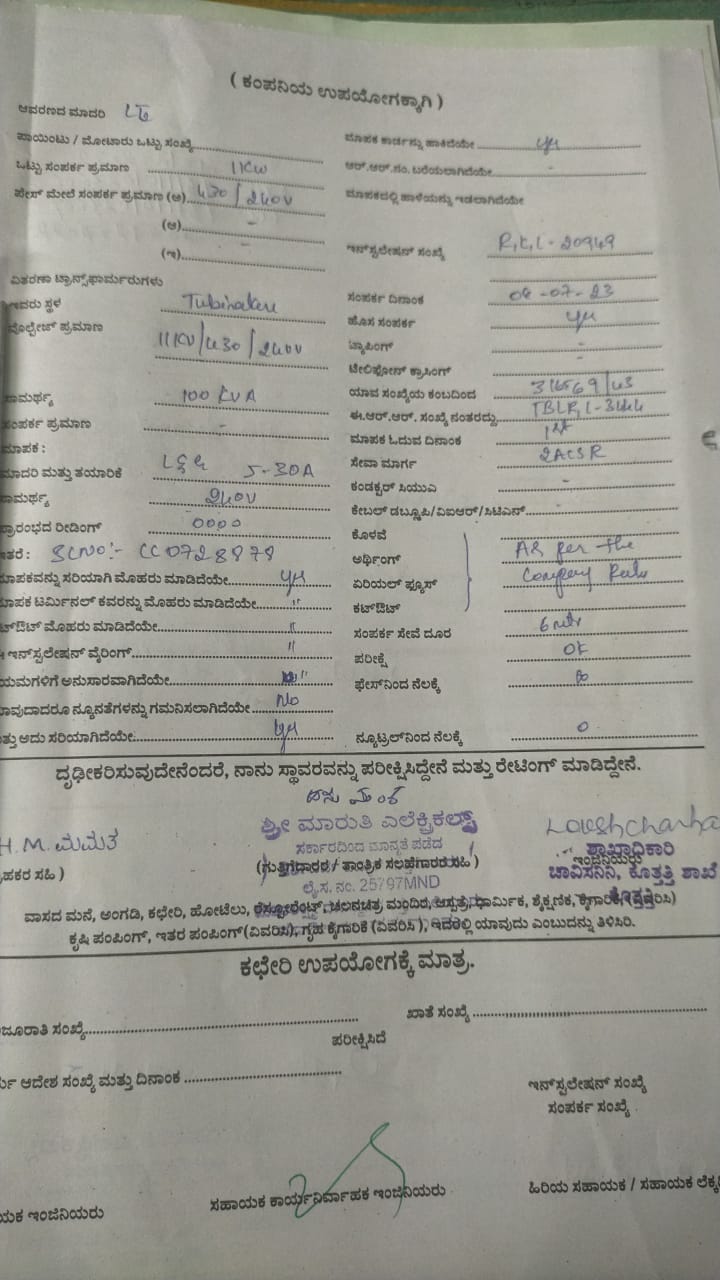 ( ಕಂಪನಿಯ ಉಪಯೋಗಕ್ಕಾಗಿ )
ಆವರಣದ ಮಾದರಿ
ಪಾಯಿಂಟು / ಮೋಟಾರು ಒಟ್ಟು ಸಂಖ್ಯೆ
ಮಾಪಕ ಕಾರ್ಡನ್ನು ಹಾಕಿದೆಯೇ yes
ಒಟ್ಟು ಸಂಪರ್ಕ ಪ್ರಮಾಣ 11KW
ಆರ್.ಆರ್.ನಂ. ಬರೆಯಲಾಗಿದೆಯೇ -
ಪೇಸ್ ಮೇಲೆ ಸಂಪರ್ಕ ಪ್ರಮಾಣ (ಅ) 430/240V
ಮಾಪಕದಲ್ಲಿ ಹಾಳೆಯನ್ನು ಇಡಲಾಗಿದೆಯೇ
(ಆ) -
(ಇ) -
ಇನ್ಸ್ಟಲೇಷನ್ ಸಂಖ್ಯೆ R,K,L-20949
ವಿತರಣಾ ಟ್ರಾನ್ಸ್‌ಫಾರ್ಮರುಗಳು
ಇವರು ಸ್ಥಳ Tubinakere
ಸಂಪರ್ಕ ದಿನಾಂಕ 04-07-23
ವೋಲ್ಟೇಜ್ ಪ್ರಮಾಣ 11KV/430/240V
ಹೊಸ ಸಂಪರ್ಕ yes
ಟ್ಯಾಪಿಂಗ್ -
ಟೆಲಿಫೋನ್ ಕ್ರಾಸಿಂಗ್ -
ಸಾಮರ್ಥ್ಯ 100 KVA
ಯಾವ ಸಂಖ್ಯೆಯ ಕಂಬದಿಂದ
ಸಂಪರ್ಕ ಪ್ರಮಾಣ -
ಈ.ಆರ್.ಆರ್. ಸಂಖ್ಯೆ ನಂತರದ್ದು
ಮಾಪಕ :
ಮಾಪಕ ಓದುವ ದಿನಾಂಕ 1st
ಮಾದರಿ ಮತ್ತು ತಯಾರಿಕೆ L&G 5-30A
ಸೇವಾ ಮಾರ್ಗ 2ACSR
ಸಾಮರ್ಥ್ಯ 240V
ಕಂಡಕ್ಟರ್ ಸಿಯುಎ -
ಪ್ರಾರಂಭದ ರೀಡಿಂಗ್ 0000
ಕೇಬಲ್ ಡಬ್ಲ್ಯೂಪಿ/ವಿಐಆರ್/ಸಿಟಿಎಸ್ -
ಇತರೆ : SLNO:- CC0728878
ಕೊಳವೆ
ಅರ್ಥಿಂಗ್ As per the
ಮಾಪಕವನ್ನು ಸರಿಯಾಗಿ ಮೊಹರು ಮಾಡಿದೆಯೇ yes
ಏರಿಯಲ್ ಫ್ಯೂಸ್ Company Rules
ಮಾಪಕ ಟರ್ಮಿನಲ್ ಕವರನ್ನು ಮೊಹರು ಮಾಡಿದೆಯೇ "
ಕಟ್‌ಔಟ್
ಕಟ್‌ಔಟ್ ಮೊಹರು ಮಾಡಿದೆಯೇ "
ಸಂಪರ್ಕ ಸೇವೆ ದೂರ 6 mtr
ಇನ್ಸ್ಟಲೇಷನ್ ವೈರಿಂಗ್ "
ಪರೀಕ್ಷೆ OK
ನಿಯಮಗಳಿಗೆ ಅನುಸಾರವಾಗಿದೆಯೇ "
ಫೇಸ್‌ನಿಂದ ನೆಲಕ್ಕೆ
ಯಾವುದಾದರೂ ನ್ಯೂನತೆಗಳನ್ನು ಗಮನಿಸಲಾಗಿದೆಯೇ No
ಮತ್ತು ಅದು ಸರಿಯಾಗಿದೆಯೇ yes
ನ್ಯೂಟ್ರಲ್‌ನಿಂದ ನೆಲಕ್ಕೆ 0
ದೃಢೀಕರಿಸುವುದೇನೆಂದರೆ, ನಾನು ಸ್ಥಾವರವನ್ನು ಪರೀಕ್ಷಿಸಿದ್ದೇನೆ ಮತ್ತು ರೇಟಿಂಗ್ ಮಾಡಿದ್ದೇನೆ.
H.M. ಮಮತ
ಶ್ರೀ ಮಾರುತಿ ಎಲೆಕ್ಟ್ರಿಕಲ್ಸ್
ಸರ್ಕಾರದಿಂದ ಮಾನ್ಯತೆ ಪಡೆದ
(ಗುತ್ತಿಗೆದಾರರ / ತಾಂತ್ರಿಕ ಸಲಹೆಗಾರರ ಸಹಿ )
ಲೈ.ಸ. ನಂ. 25797MND
ಶಾಖಾಧಿಕಾರಿ
ಇಂಜಿನಿಯರು
ಚಾವಿಸನಿನಿ, ಕೊತ್ತತ್ತಿ ಶಾಖೆ
ವಾಸದ ಮನೆ, ಅಂಗಡಿ, ಕಛೇರಿ, ಹೋಟೆಲು, ರೆಸ್ಟೋರೆಂಟ್, ಚಲನಚಿತ್ರ ಮಂದಿರ, ಆಸ್ಪತ್ರೆ, ಧಾರ್ಮಿಕ, ಶೈಕ್ಷಣಿಕ, ಕೈಗಾರಿಕೆ, (ವಿವರಿಸಿ)
ಕೃಷಿ ಪಂಪಿಂಗ್, ಇತರ ಪಂಪಿಂಗ್(ವಿವರಿಸಿ), ಗೃಹ ಕೈಗಾರಿಕೆ (ವಿವರಿಸಿ ), ಇದರಲ್ಲಿ ಯಾವುದು ಎಂಬುದನ್ನು ತಿಳಿಸಿರಿ.
ಕಛೇರಿ ಉಪಯೋಗಕ್ಕೆ ಮಾತ್ರ.
ಜೂರಾತಿ ಸಂಖ್ಯೆ
ಖಾತೆ ಸಂಖ್ಯೆ
ಪರೀಕ್ಷಿಸಿದೆ
ಆದೇಶ ಸಂಖ್ಯೆ ಮತ್ತು ದಿನಾಂಕ
ಇನ್ಸ್ಟಲೇಷನ್ ಸಂಖ್ಯೆ
ಸಂಪರ್ಕ ಸಂಖ್ಯೆ
ಸಹಾಯಕ ಕಾರ್ಯನಿರ್ವಾಹಕ ಇಂಜಿನಿಯರು
ಹಿರಿಯ ಸಹಾಯಕ / ಸಹಾಯಕ
ಯಕ ಇಂಜಿನಿಯರು